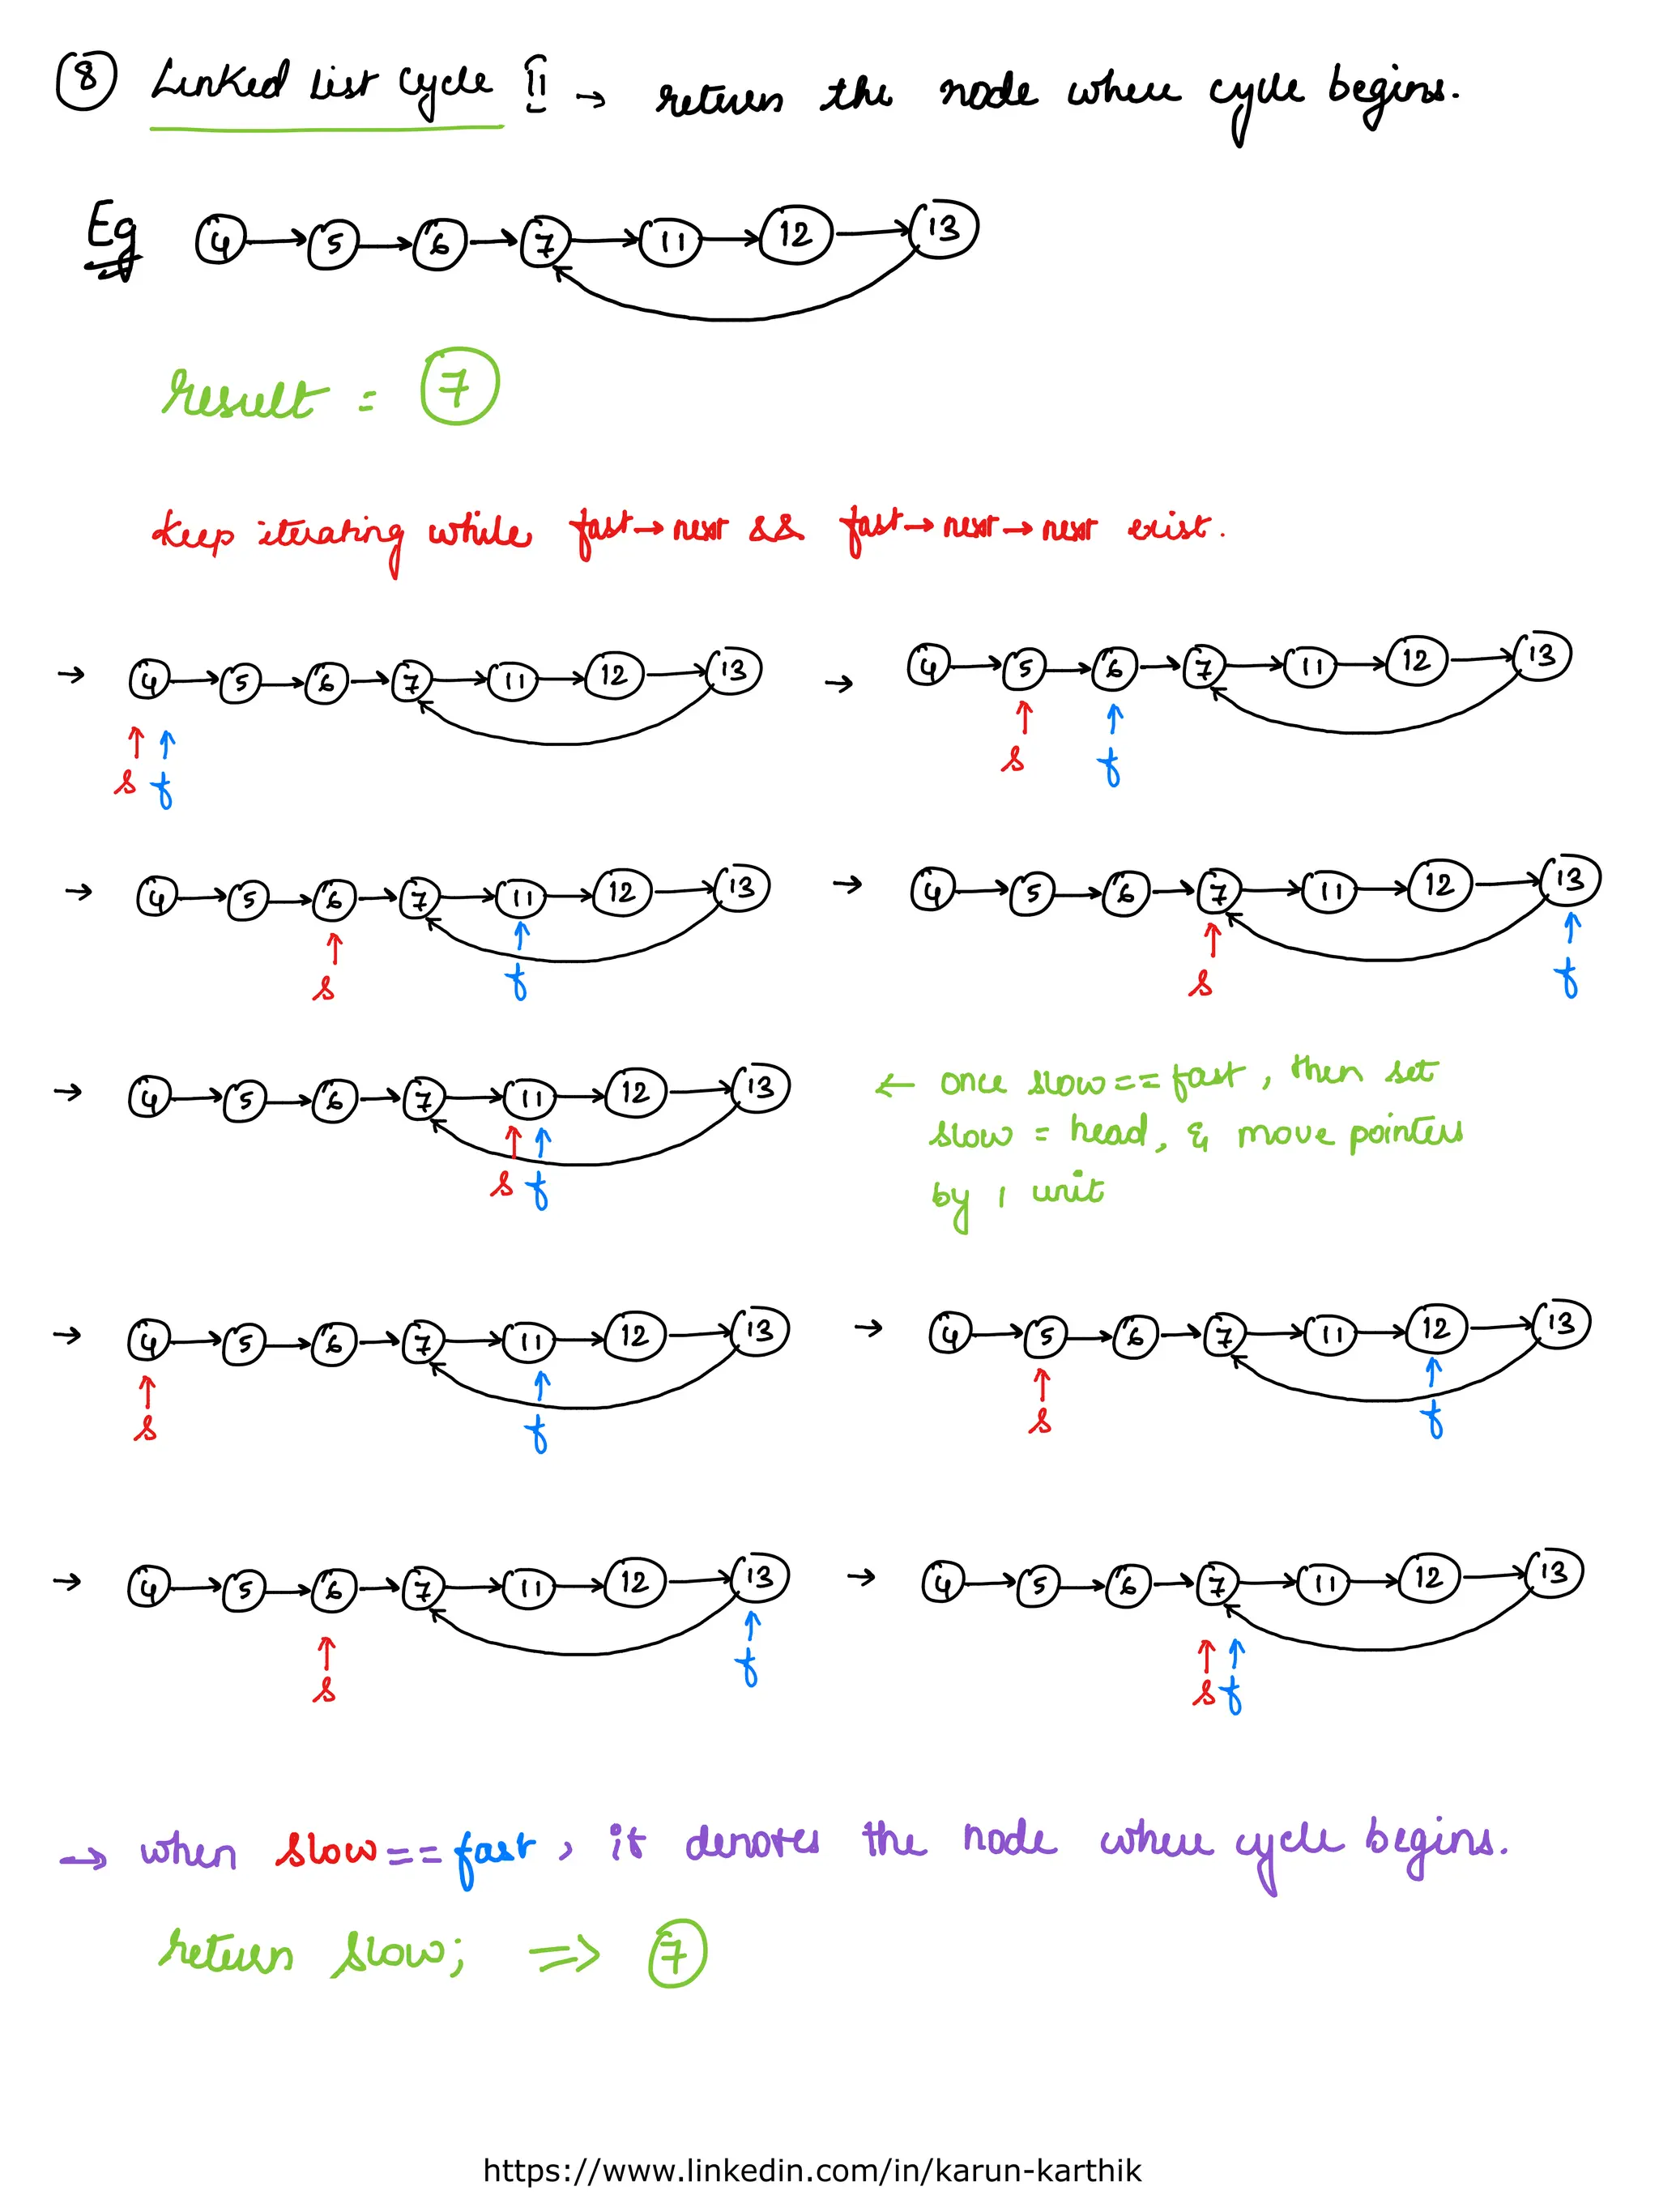 8 Linked List Cycle II → return the node where cycle begins.
Eg 4 → 5 → 6 → 7 → 11 → 12 → 13
result = 7
Keep iterating while fast→next && fast→next→next exist.
→ 4 → 5 → 6 → 7 → 11 → 12 → 13
s f
→ 4 → 5 → 6 → 7 → 11 → 12 → 13
s f
→ 4 → 5 → 6 → 7 → 11 → 12 → 13
s f
→ 4 → 5 → 6 → 7 → 11 → 12 → 13
s f
→ 4 → 5 → 6 → 7 → 11 → 12 → 13
s f
← once slow==fast, then set
slow = head, & move pointers
by 1 unit
→ 4 → 5 → 6 → 7 → 11 → 12 → 13
s f
→ 4 → 5 → 6 → 7 → 11 → 12 → 13
s f
→ 4 → 5 → 6 → 7 → 11 → 12 → 13
s f
→ 4 → 5 → 6 → 7 → 11 → 12 → 13
s f
→ when slow==fast, it denotes the node where cycle begins.
return slow; => 7
https://www.linkedin.com/in/karun-karthik